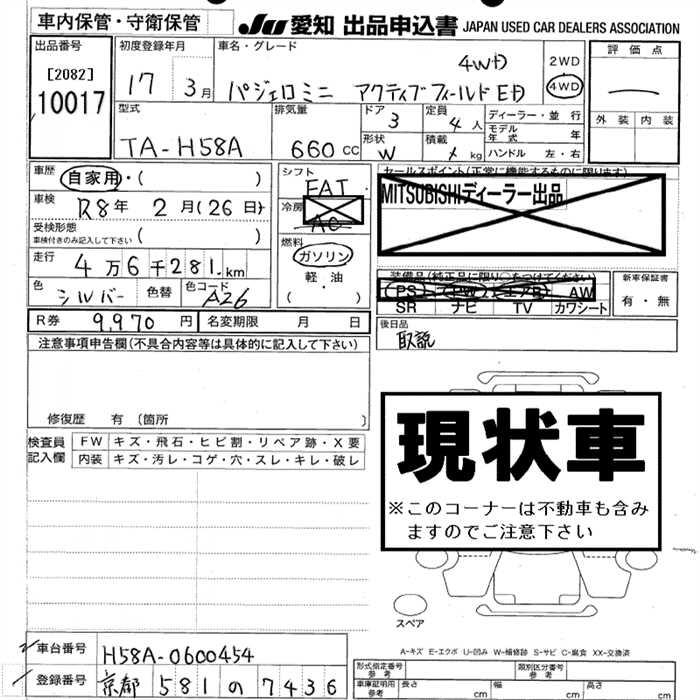 車内保管・守衛保管
JU 愛知 出品申込書 JAPAN USED CAR DEALERS ASSOCIATION
出品番号
[2082]
10017
初度登録年月
17 3月
車名・グレード
4WD
パジェロミニ アクティブフィールドED
2WD
4WD
評価点
外装 内装
型式
TA-H58A
排気量
660 CC
ドア
3
定員
4人
形状
W
積載
kg
ディーラー・並行
モデル年式 年
ハンドル 左・右
車歴
自家用・( )
車検
R8年 2月(26日)
受検形態
車検付きのみ記入して下さい ( )
走行
4万6千281km
色
シルバー
色替
色コード
A26
シフト
FAT
冷房
AC
燃料
ガソリン
軽・油
( ・ )
セールスポイント(正常に機能するものに限ります)
MITSUBISHIディーラー出品
装備品(純正品に限り○をつけてください)
PS PW エアB AW
SR ナビ TV カワシート
新車保証書
有・無
R券 9,970円
名変期限 月 日
後日品
取説
注意事項申告欄(不具合内容等は具体的に記入して下さい)
修復歴 有 〔箇所 〕
検査員記入欄
FW キズ・飛石・ヒビ割・リペア跡・X要
内装 キズ・汚レ・コゲ・穴・スレ・キレ・破レ
現状車
※このコーナーは不動車も含み
ますのでご注意下さい
スペア
A-キズ E-エクボ U-凹み W-補修跡 S-サビ C-腐食 XX-交換済
車台番号 H58A-0600454
登録番号 京都 581 の 7436
形式指定番号
参考
類別区分番号
参考
車庫証明用
参考
長さ cm
幅 cm
高さ cm